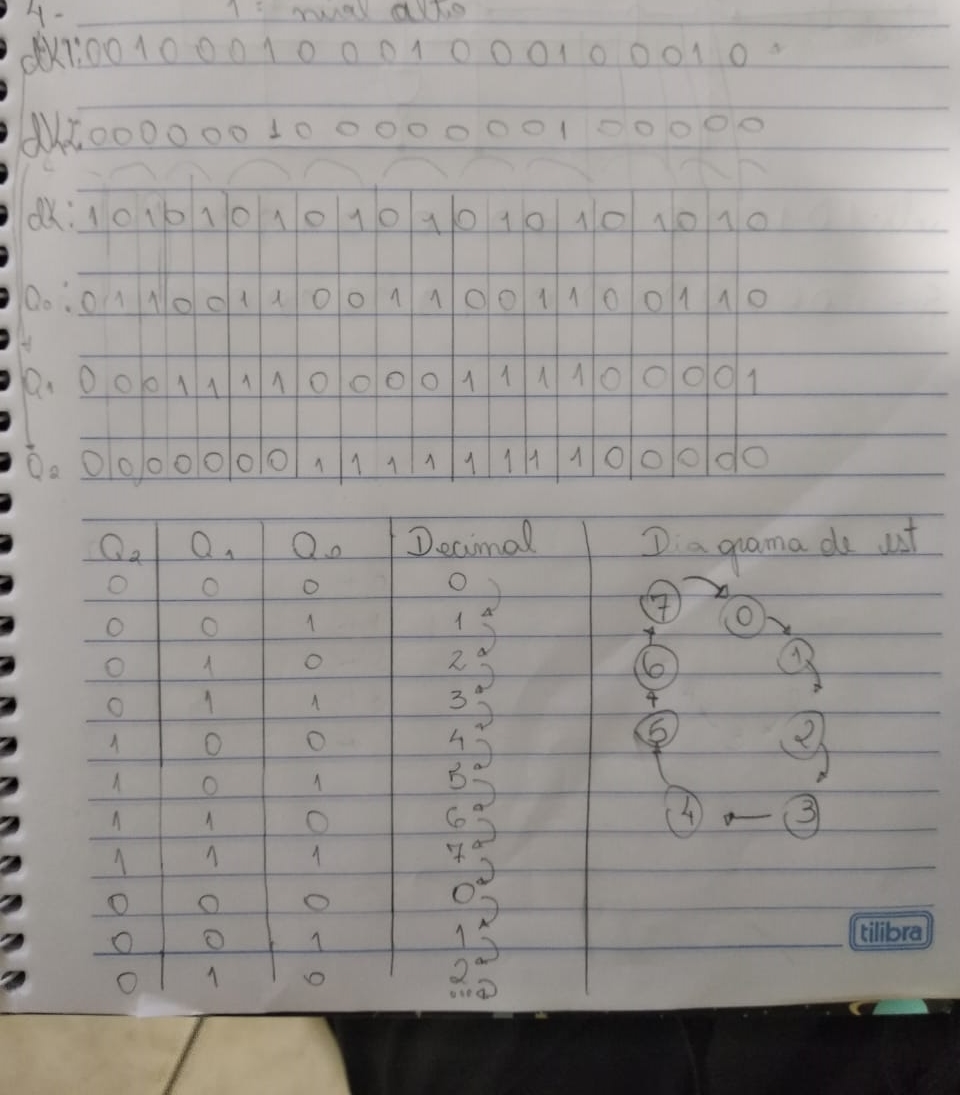 4- 1: nível alto
clk1: 0 0 1 0 0 0 1 0 0 0 1 0 0 0 1 0 0 0 1 0
clk2: 0 0 0 0 0 0 1 0 0 0 0 0 0 0 1 0 0 0 0 0
clk: 1 0 1 0 1 0 1 0 1 0 1 0 1 0 1 0 1 0 1 0
Q0: 0 1 1 0 0 1 1 0 0 1 1 0 0 1 1 0 0 1 1 0
Q1 0 0 0 1 1 1 1 0 0 0 0 1 1 1 1 0 0 0 0 1
Q2 0 0 0 0 0 0 0 1 1 1 1 1 1 1 1 0 0 0 0 0
Q2 Q1 Q0 Decimal Diagrama de est
0 0 0 0
0 0 1 1
0 1 0 2
0 1 1 3
1 0 0 4
1 0 1 5
1 1 0 6
1 1 1 7
0 0 0 0
0 0 1 1
0 1 0 2
...
7 0
6 1
5 2
4 3
tilibra